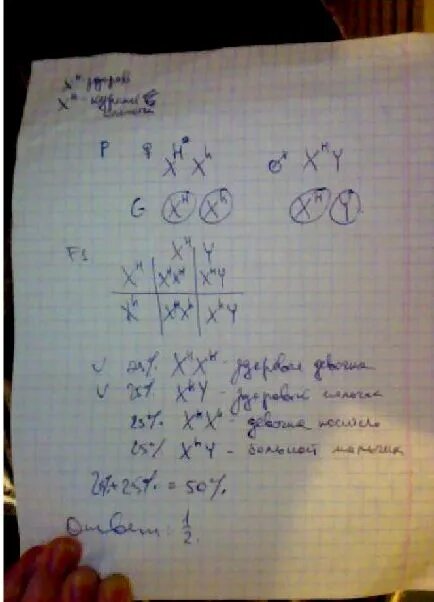 X^H - здоров
X^h -
P ♀ X^H X^h ♂ X^H Y
G X^H X^h X^H Y
F1 X^H Y
X^H X^H X^H X^H Y
X^h X^H X^h X^h Y
v 25% X^H X^H - здоровая девочка
v 25% X^H Y - здоровый мальчик
25% X^H X^h - девочка носитель
25% X^h Y - больной мальчик
25%+25% = 50%
Ответ: 1/2.